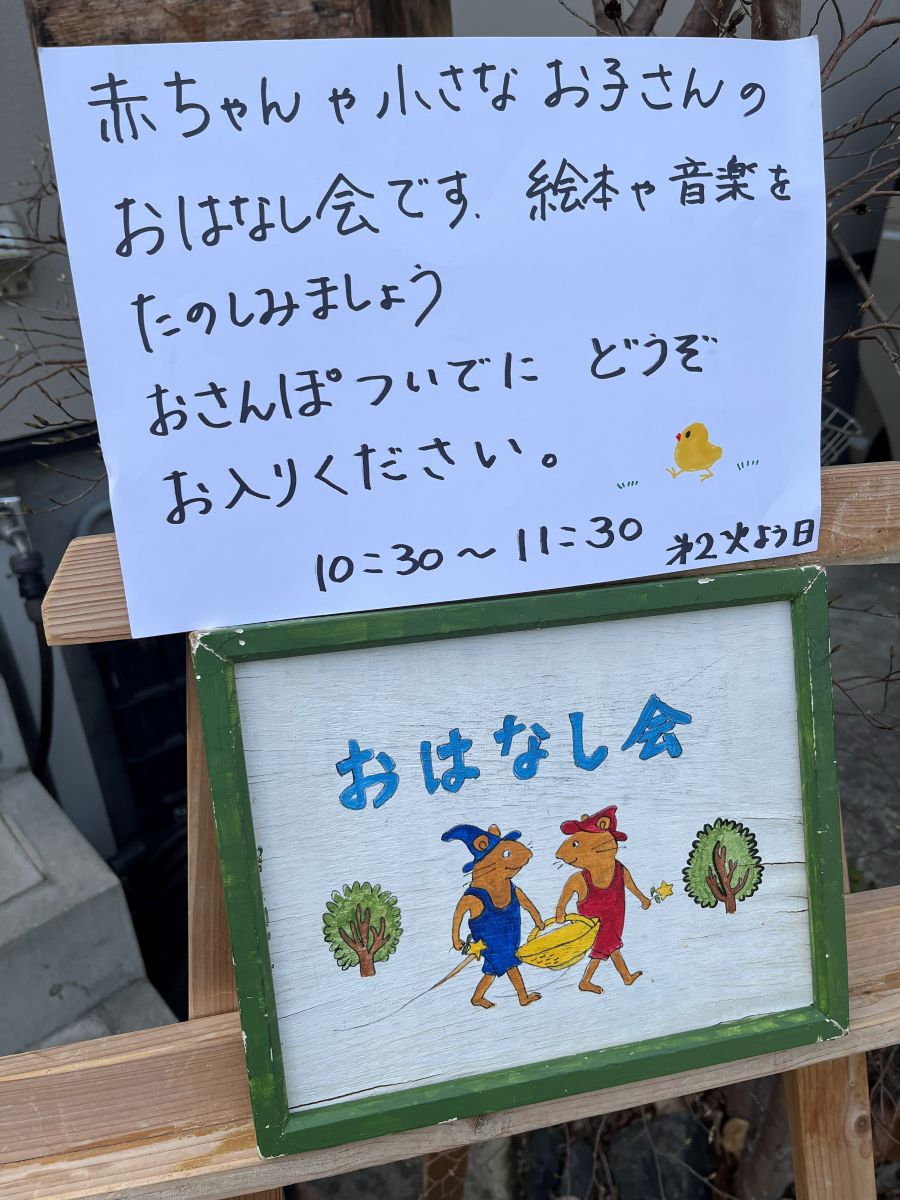 赤ちゃんや小さなお子さんの
おはなし会です、絵本や音楽を
たのしみましょう
おさんぽついでに どうぞ
お入りください。
10:30～11:30 第2火よう日
おはなし会